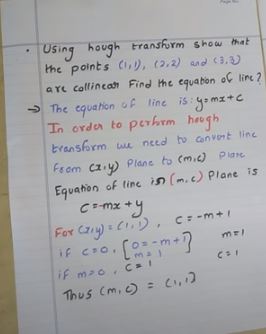 • Using hough transform show that
the points (1,1), (2,2) and (3,3)
are collinear Find the equation of line?
→ The equation of line is: y=mx+c
In order to perform hough
transform we need to convert line
from (x,y) Plane to (m,c) Plane
Equation of line in (m,c) Plane is
C=-mx+y
For (x,y) = (1,1), C=-m+1
if c=0, [0=-m+1
m=1] m=1
if m=0, C=1 C=1
Thus (m,c) = (1,1)